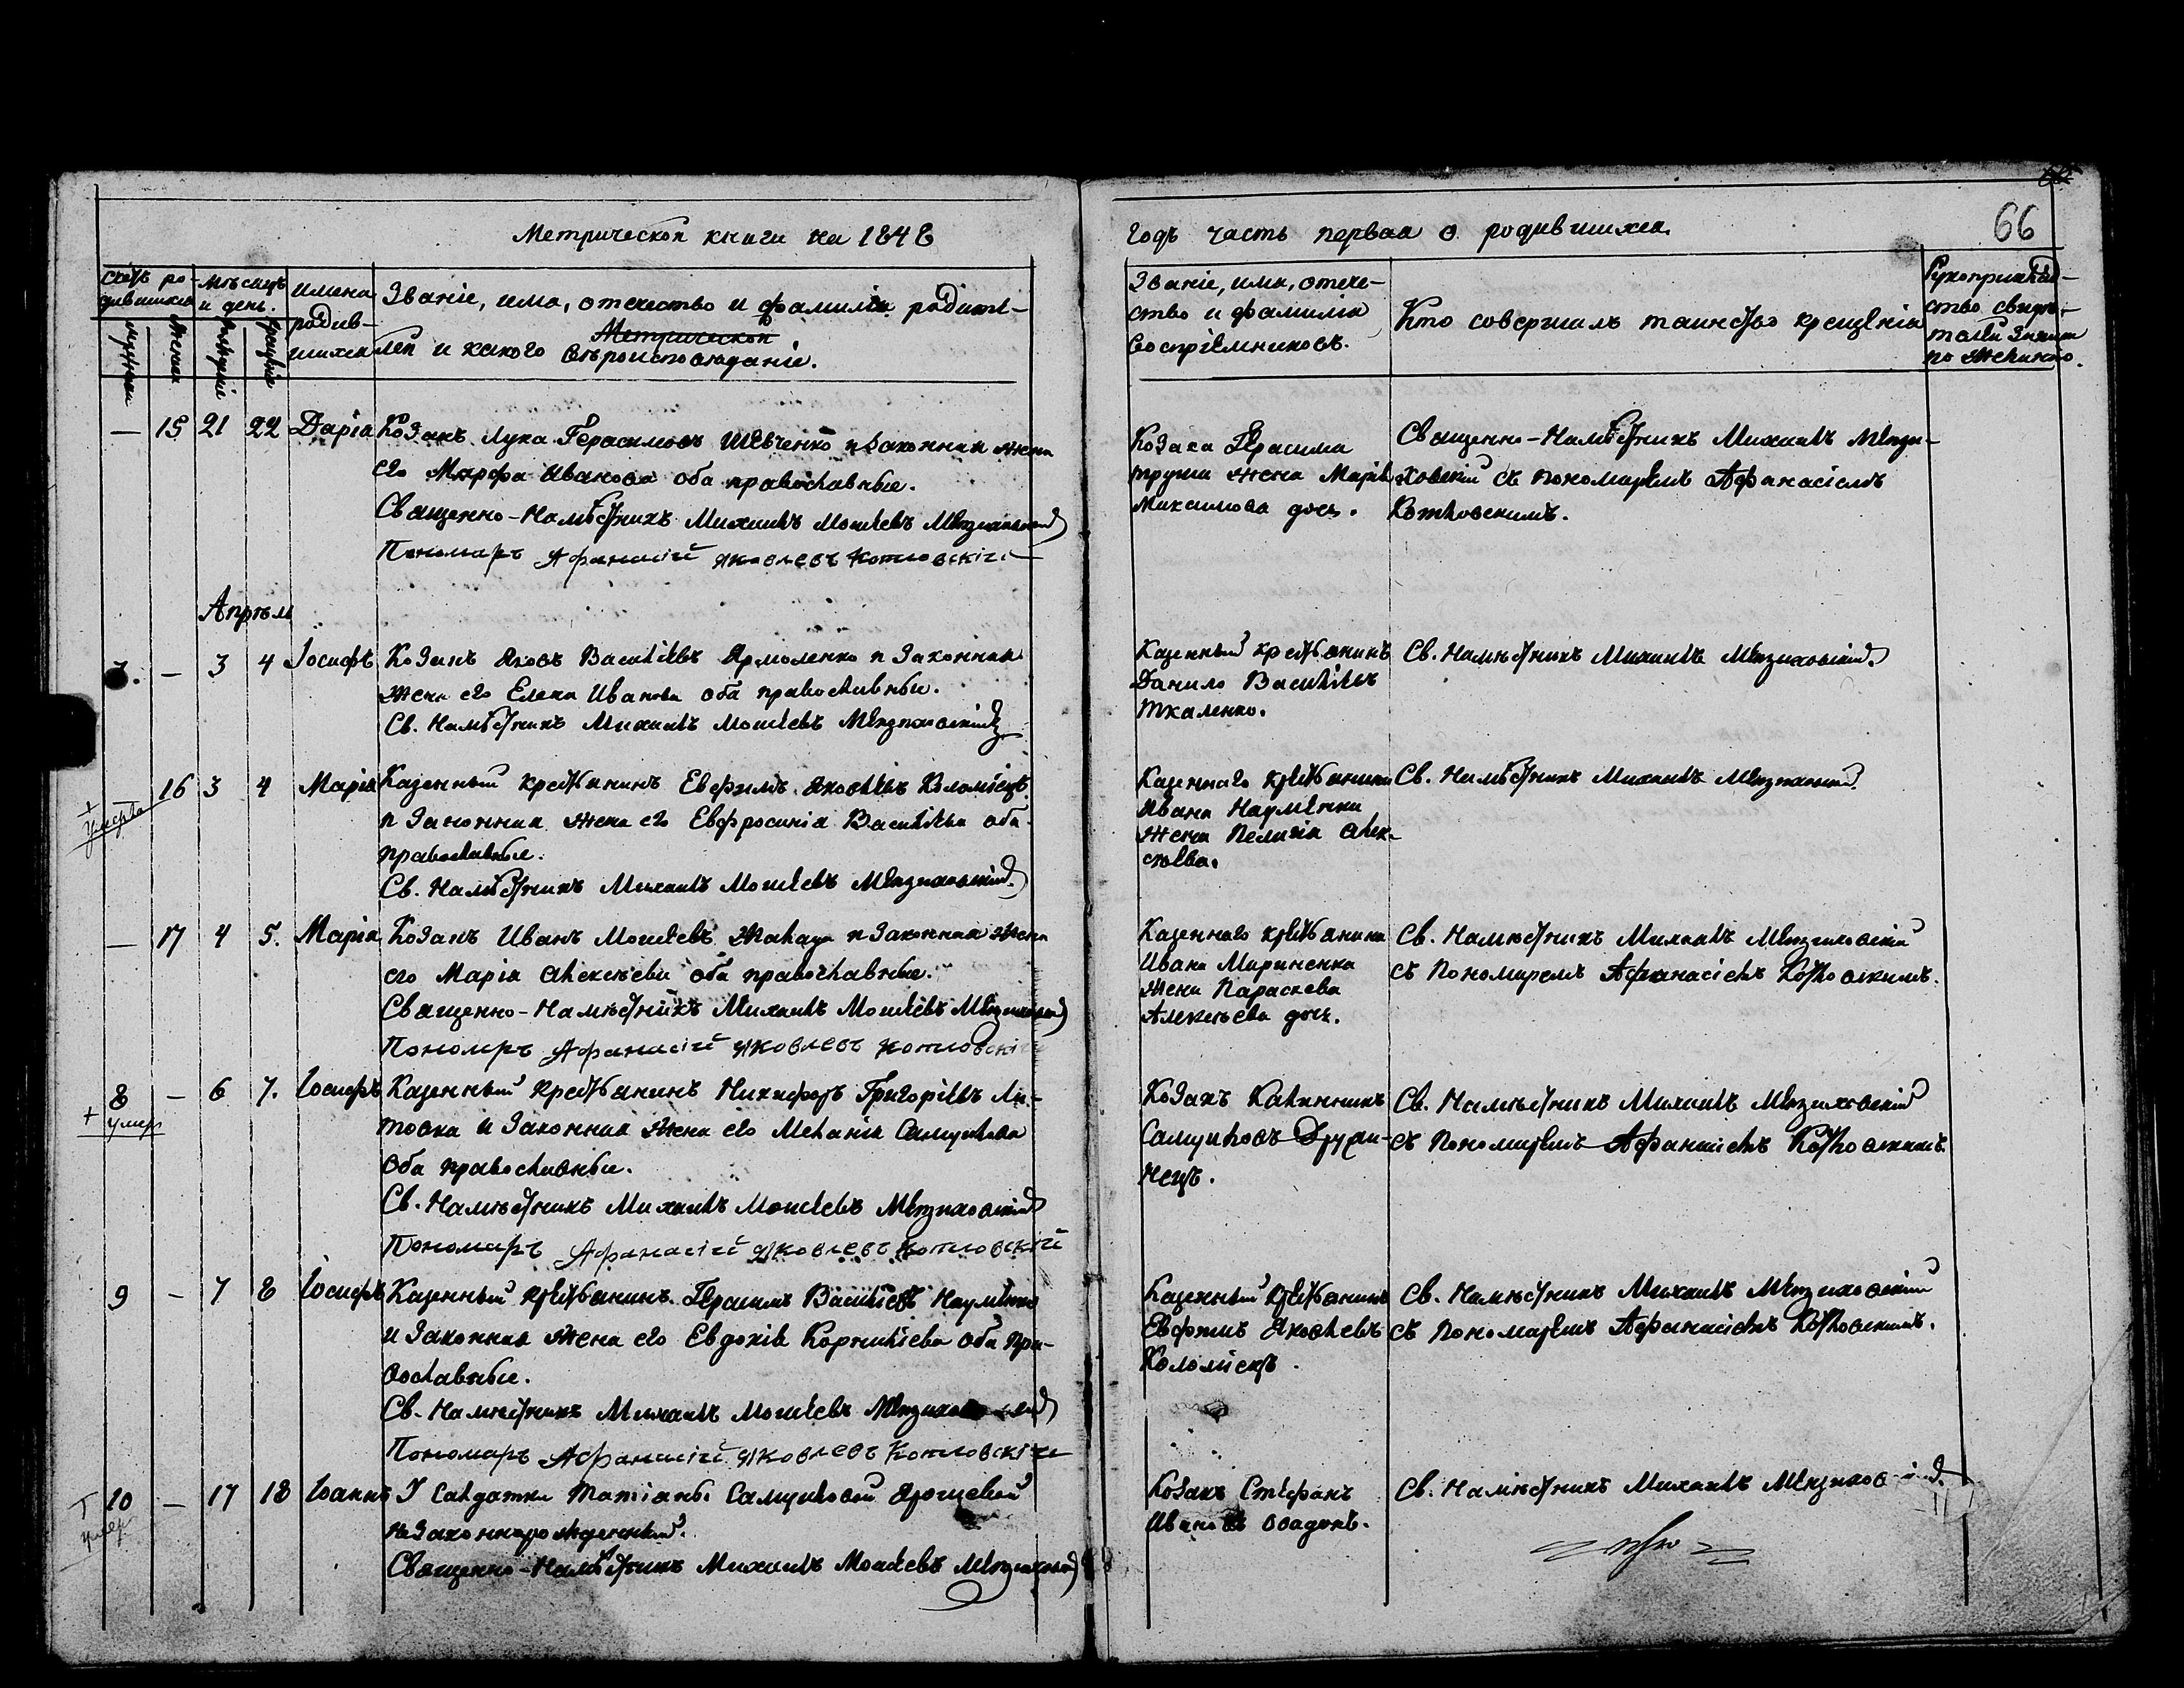 Метрической книги на 1848
счетъ ро-
дившихся
мѣсяцъ
и день.
имена
родив-
шихся
Званіе, имя, отечество и фамилія родите-
Метрической
лей и какого вѣроисповѣданіе.
мужеска
женска
рожденіе
крещеніе
— 15 21 22 Дарія Козакъ Лука Герасимовъ Шевченко и законная жена
его Марфа Иванова оба православные.
Священно-Намѣстникъ Михаилъ Моисѣевъ
Пономарь Афанасій Яковлевъ Котловскій
Апрѣль
7. — 3 4 Іосифъ Козакъ Яковъ Васильевъ Ярмоленко и законная
жена его Елена Иванова оба православные.
Св. Намѣстникъ Михаилъ Моисеевъ
16 3 4 Марія Казенный крестьянинъ Евфимъ Яковлевъ Коломіецъ
умерла
и законная жена его Евфросинія Васильева оба
православные.
Св. Намѣстникъ Михаилъ Моисеевъ
— 17 4 5. Марія Козакъ Иванъ Моисеевъ и законная жена
его Марія Алексѣева оба православные.
Священно-Намѣстникъ Михаилъ Моисеевъ
Пономарь Афанасій Яковлевъ Котловскій
8 — 6 7. Іосифъ Казенный крестьянинъ Никифоръ Григоріевъ Ли-
+ умер
товка и законная жена его Меланія Самуилова
оба православные.
Св. Намѣстникъ Михаилъ Моисеевъ
Пономарь Афанасій Яковлевъ Котловскій
9 — 7 8 Іосифъ Казенный крестьянинъ Герасимъ Васильевъ Науменко
и законная жена его Евдокія Корниліева оба пра-
вославные.
Св. Намѣстникъ Михаилъ Моисеевъ
Пономарь Афанасій Яковлевъ Котловскій
10 — 17 18 Іоаннъ У Салдатки Татіаны Самуиловой
умер
незаконнорожденный.
Священно-Намѣстникъ Михаилъ Моисеевъ
годъ часть первая о родившихся.
66
Званіе, имя, отече-
ство и фамилія
воспріемниковъ.
Кто совершалъ таинство крещенія
Рукоприклад-
ство свидѣ-
телей записи
по желанію.
Козака Герасима
жена Марія
Максимова дочь.
Священно-Намѣстникъ Михаилъ
съ пономаремъ Афанасіемъ
Котловскимъ.
Казенный крестьянинъ
Данило Васильевъ
Ткаленко.
Св. Намѣстникъ Михаилъ
Казеннаго крестьянина
Ивана Науменка
жена Пелагія Алек-
сѣева.
Св. Намѣстникъ Михаилъ
Казеннаго крестьянина
Ивана Мариненка
жена Параскева
Алексѣева дочь.
Св. Намѣстникъ Михаилъ
съ пономаремъ Афанасіемъ Котловскимъ.
Козакъ Калинникъ
Самуиловъ
нецъ.
Св. Намѣстникъ Михаилъ
съ пономаремъ Афанасіемъ Котловскимъ.
Казенный крестьянинъ
Евфимъ Яковлевъ
Коломіецъ.
Св. Намѣстникъ Михаилъ
съ пономаремъ Афанасіемъ Котловскимъ.
Козакъ Стефанъ
Ивановъ
Св. Намѣстникъ Михаилъ